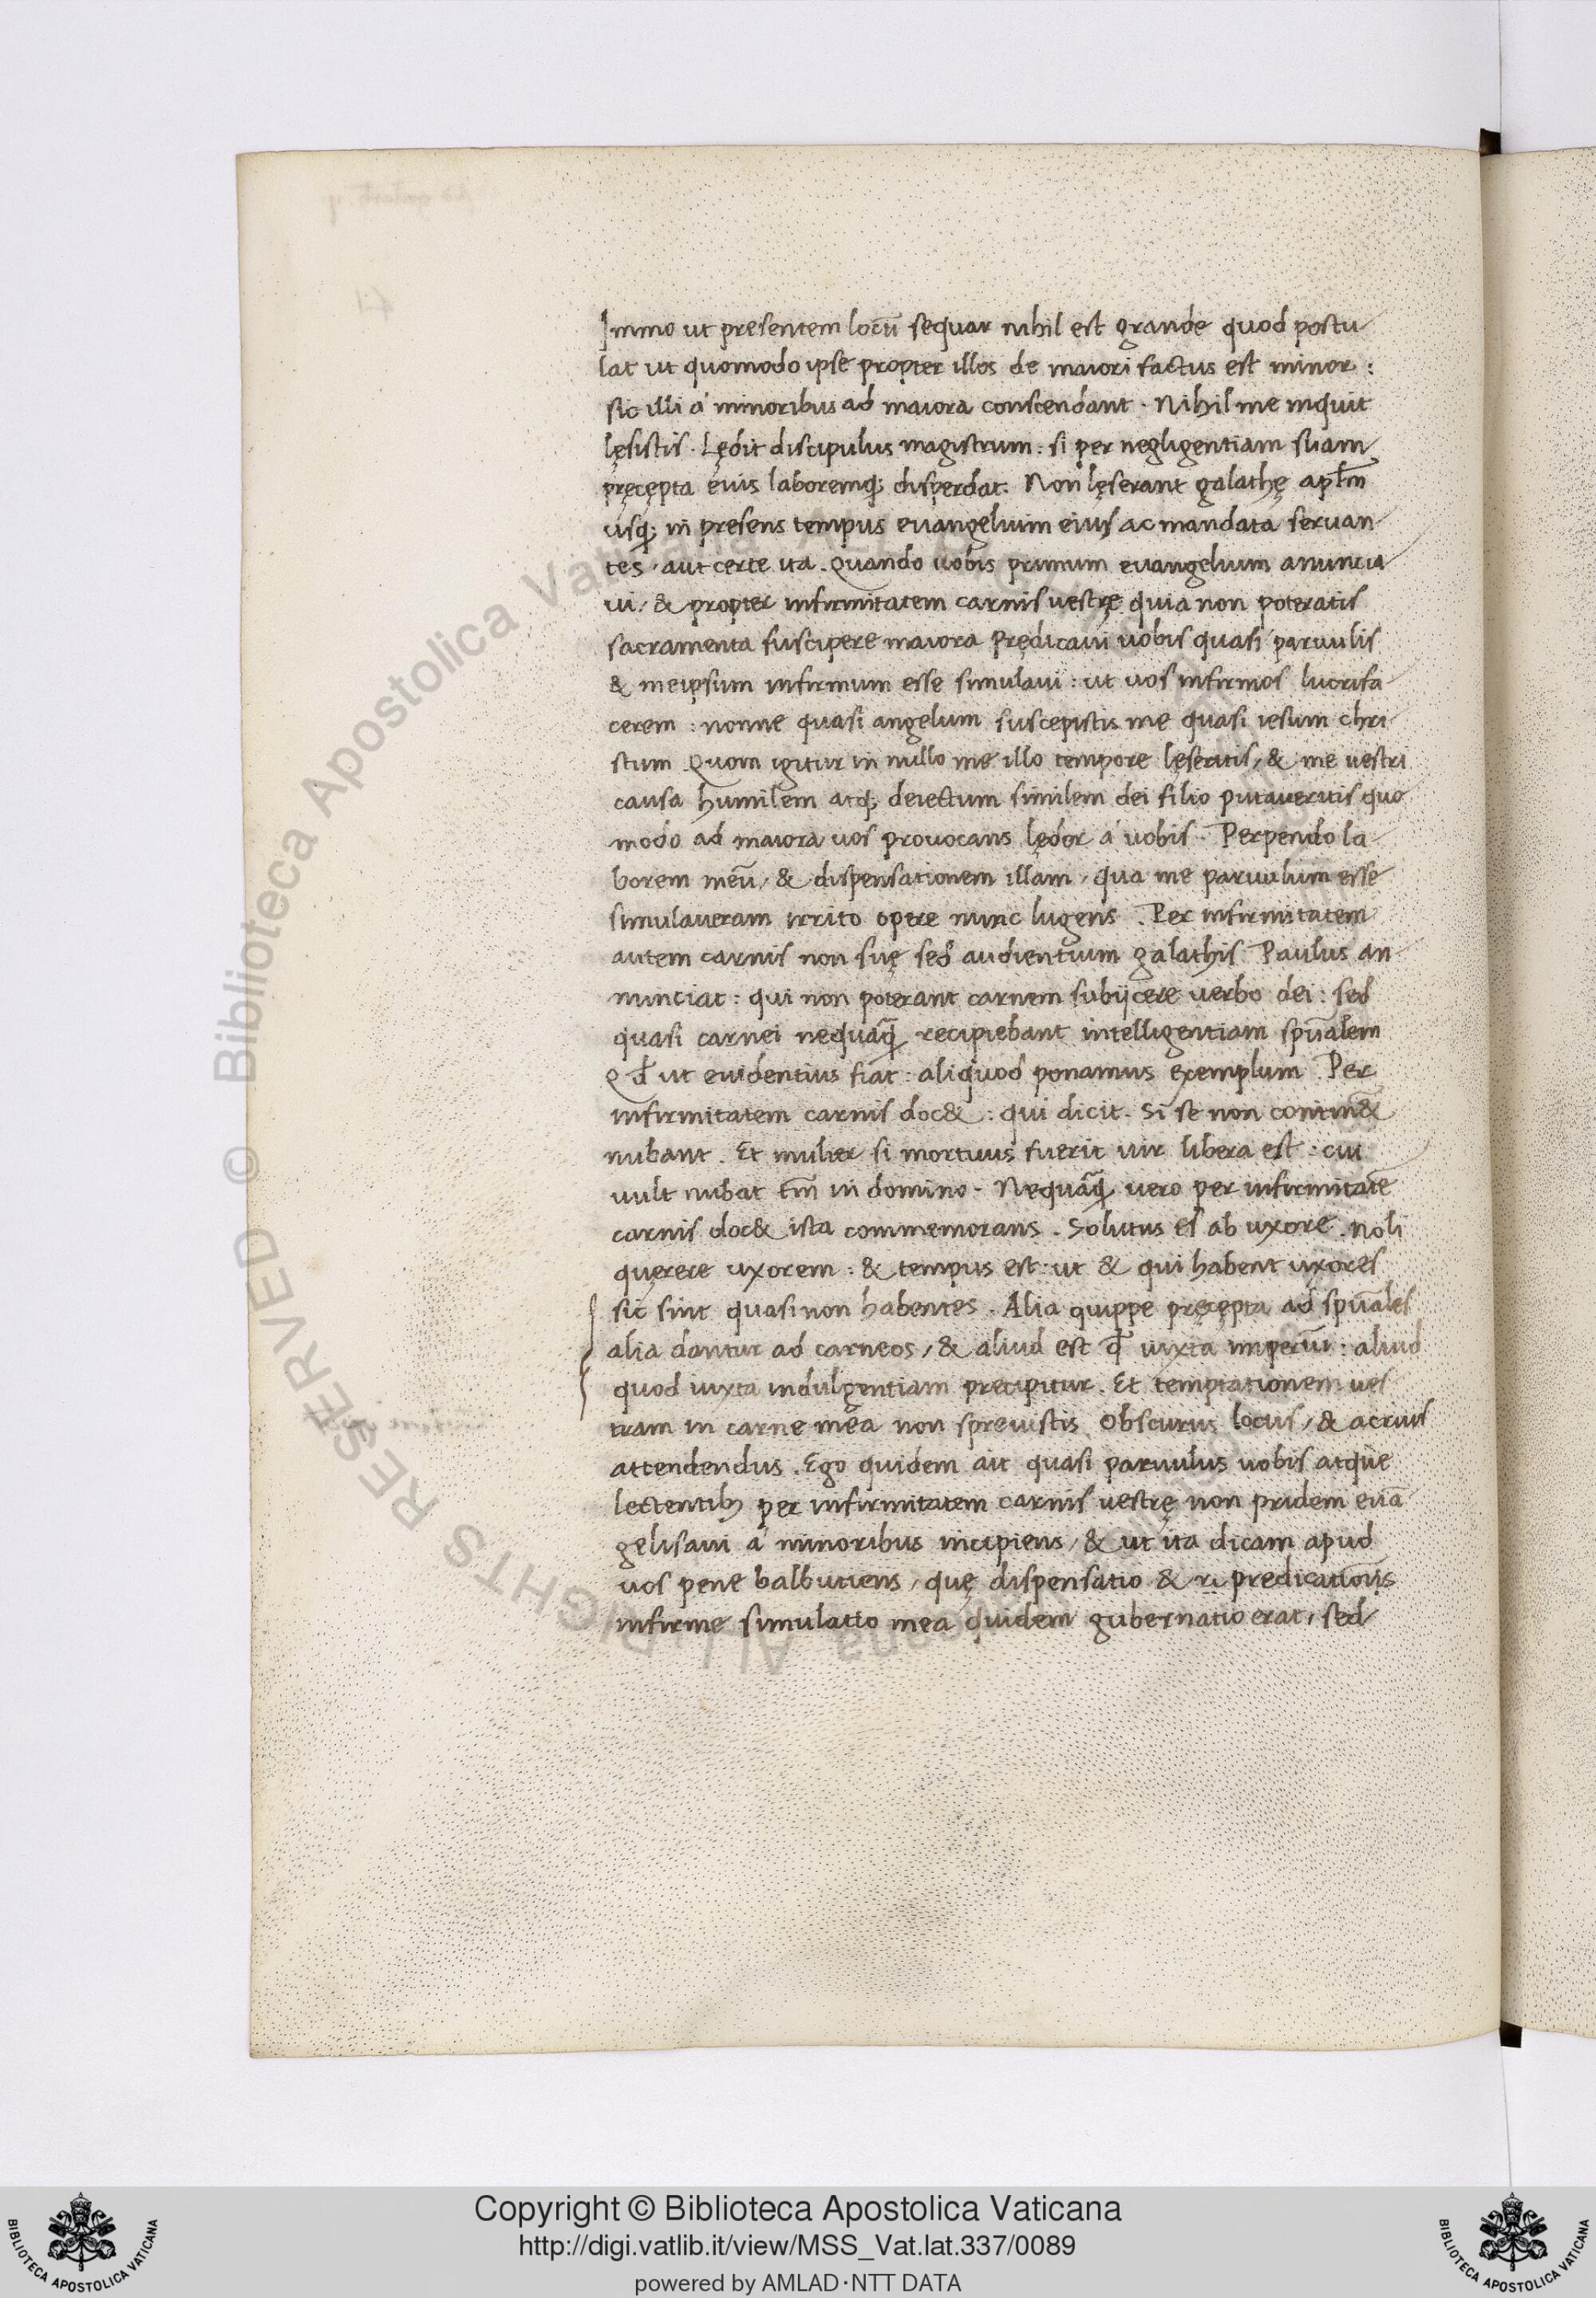 Immo ut presentem locū sequar nihil est grande quod postu
lat ut quomodo ipse propter illos de maiori factus est minor :
sic illi á minoribus ad maiora conscendant . Nihil me inquit
lęsistis . Lędit discipulus magistrum : si per negligentiam suam
pręcępta eius laboremq; disperdat . Non lęserant galathę apłm
usq; in presens tempus euangelium eius ac mandata seruan
tes , aut certe ita . Quando uobis primum euangelium anuncia
ui , & propter infirmitatem carnis uestrę quia non poteratis
sacramenta suscipere maiora prędicaui uobis quasi paruulis
& meipsum infirmum esse simulaui : ut uos infirmos lucrifa
cerem : nonne quasi angelum suscepistis me quasi iesum chri
stum Quom igitur in nullo me illo tempore lęseritis , & me uestri
causa humilem atq; deiectum similem dei filio putaueritis quo
modo ad maiora uos prouocans lędor á uobis . Perpendo la
borem meū , & dispensationem illam , qua me paruulum esse
simulaueram irrito opere nunc lugens . Per infirmitatem
autem carnis non suę sed audientium galathis Paulus an
nunciat : qui non poterant carnem subijcere uerbo dei : sed
quasi carnei nequāq̄ recipiebant intelligentiam spūalem
Qđ ut euidentius fiat : aliquod ponamus exemplum . Per
infirmitatem carnis doc& : qui dicit . Si se non contin&
nubant . Et mulier si mortuus fuerit uir libera est : cui
uult nubat tm̄ in domino . Nequāq̄ uero per infirmitatē
carnis doc& ista commemorans . Solutus es ab uxore . noli
quęrere uxorem : & tempus est : ut & qui habent uxores
sic sint quasi non habentes . Alia quippe pręcępta ad spūales
alia dantur ad carneos , & aliud est qđ iuxta imperiū : aliud
quod iuxta indulgentiam precipitur . Et temptationem ues
tram in carne mea non spreuistis Obscurus locus , & acrius
attendendus . Ego quidem ait quasi paruulus uobis atque
lectentibꝫ per infirmitatem carnis uestrę non pridem euā
gelisaui á minoribus incipiens , & ut ita dicam apud
uos pene balbutiens , quę dispensatio & predicationis
infirme simulatio mea quidem gubernatio erat , sed
© Biblioteca Apostolica Vaticana
ALL RIGHTS RESERVED
Copyright © Biblioteca Apostolica Vaticana
http://digi.vatlib.it/view/MSS_Vat.lat.337/0089
powered by AMLAD·NTT DATA
BIBLIOTECA APOSTOLICA VATICANA
BIBLIOTECA APOSTOLICA VATICANA